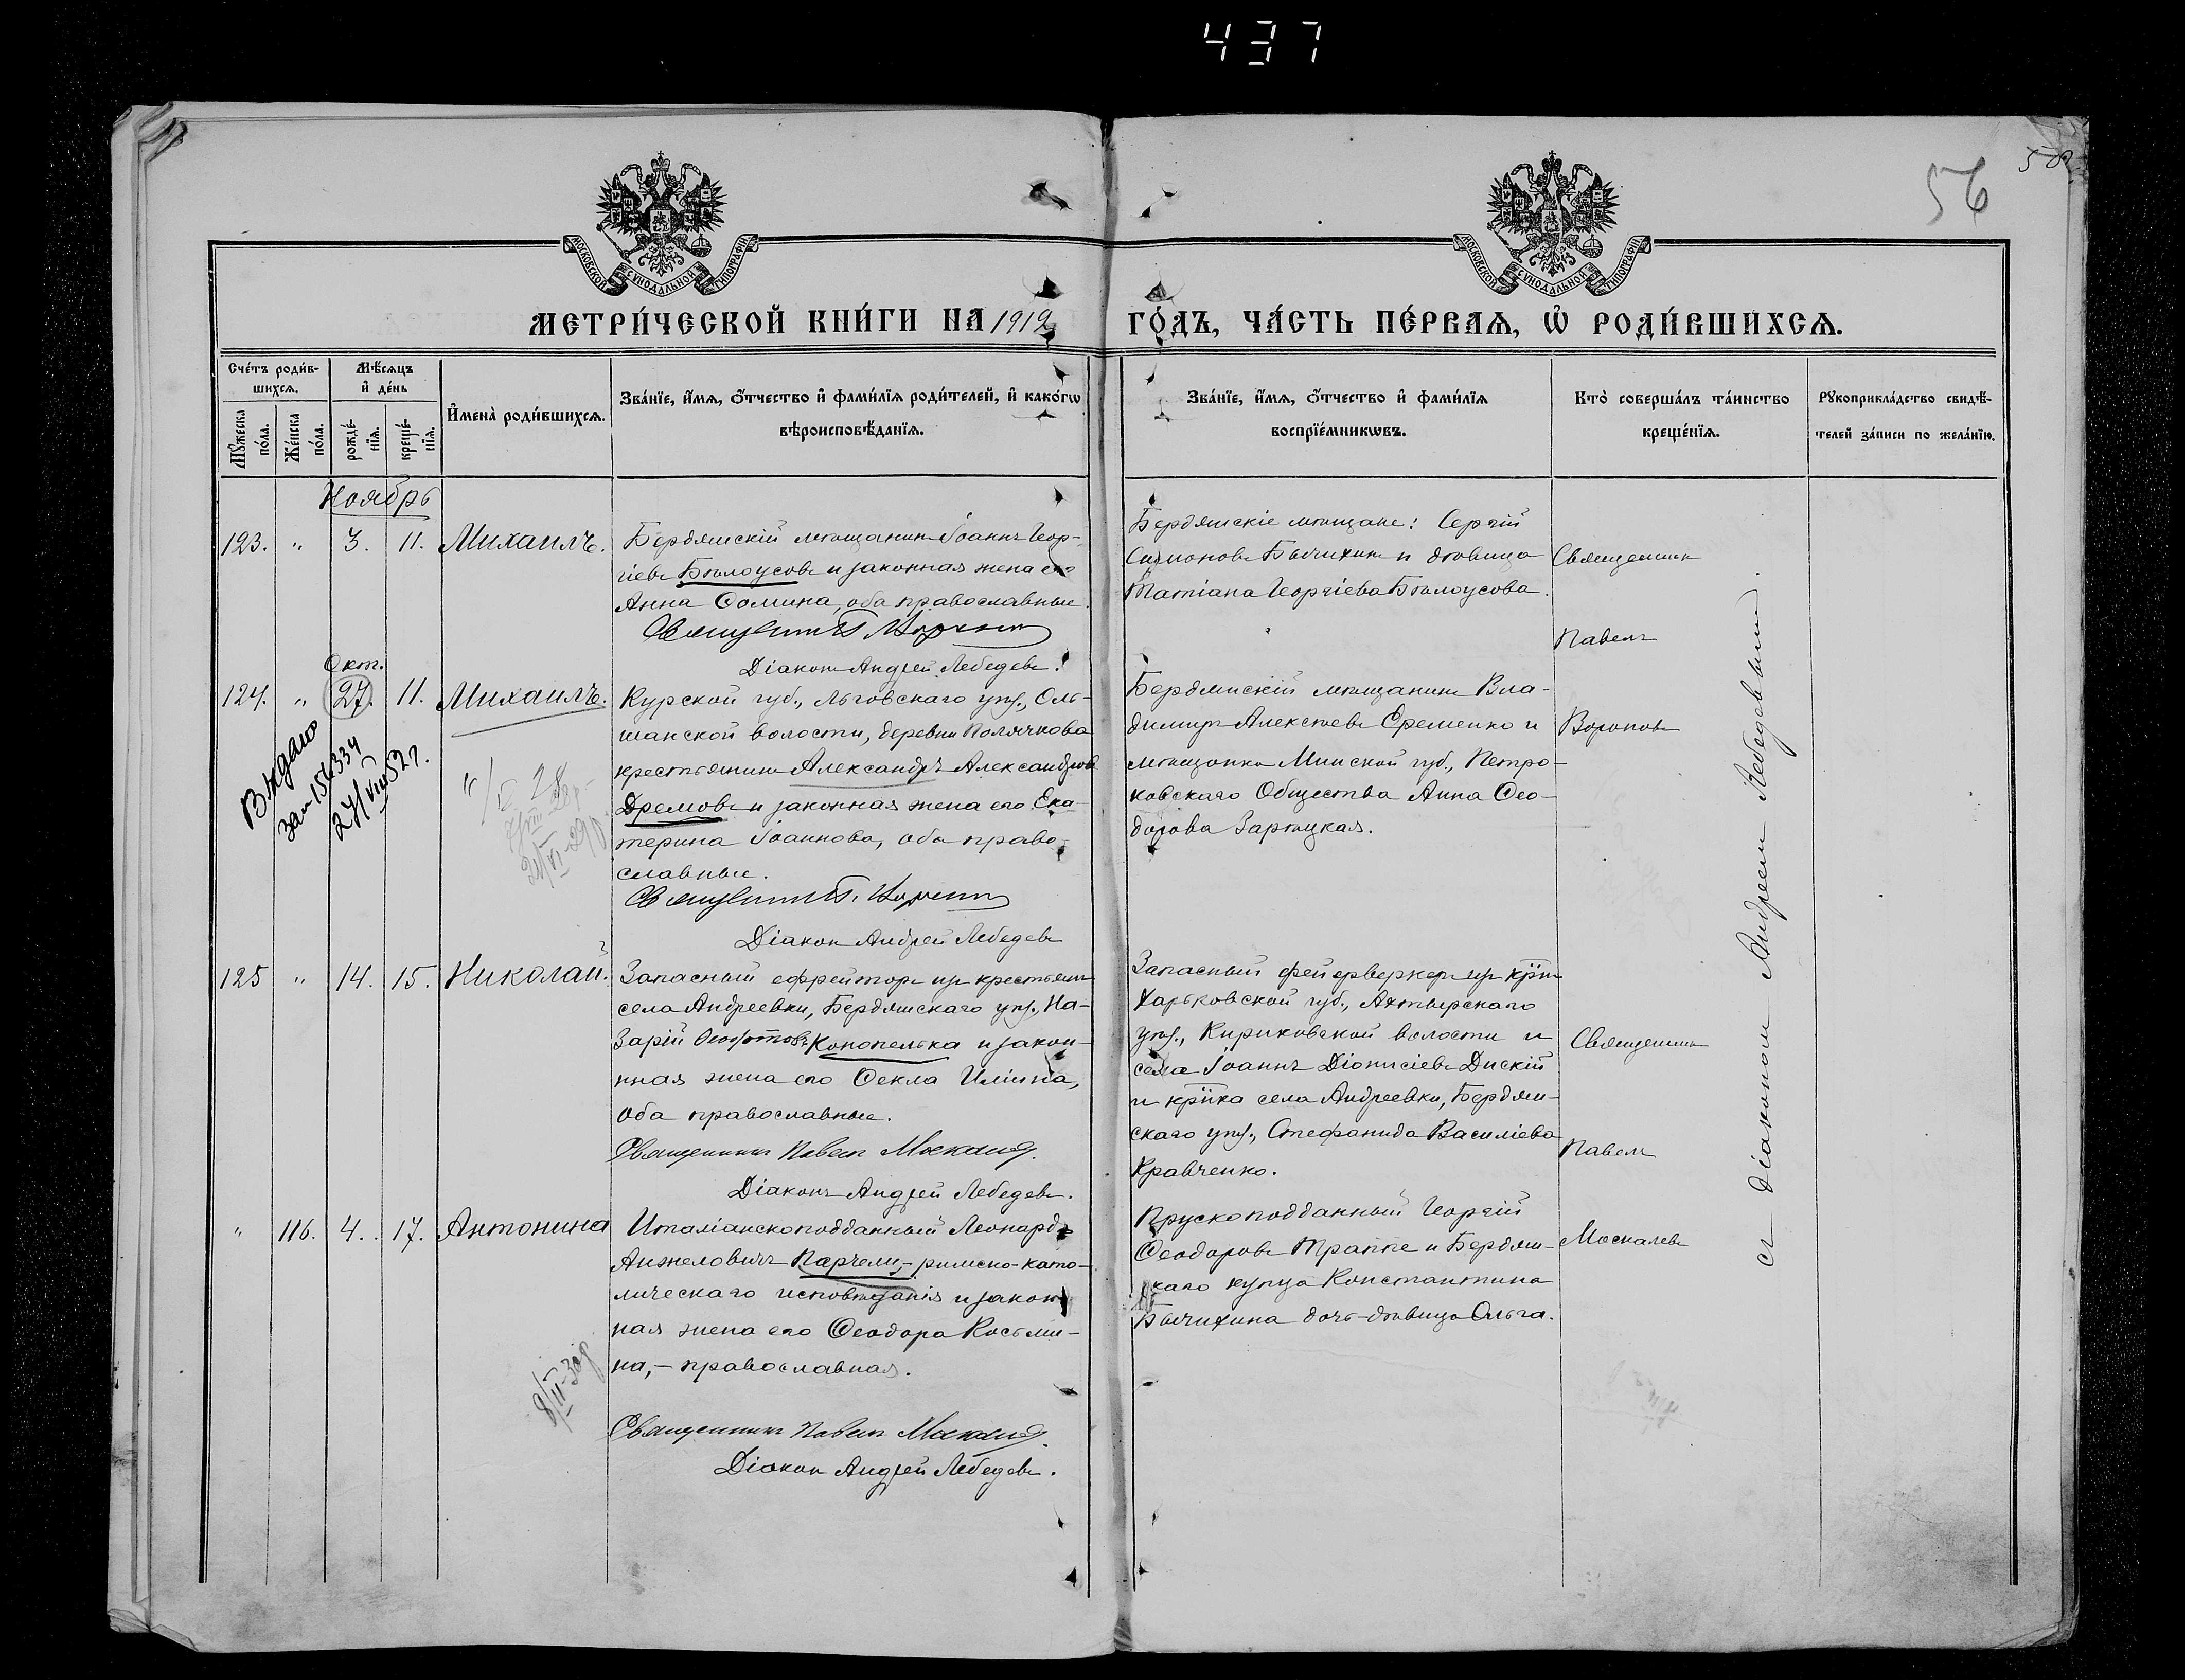 437
56
МОСКОВСКОЙ СУНОДАЛЬНОЙ ТИПОГРАФІИ
МОСКОВСКОЙ СУНОДАЛЬНОЙ ТИПОГРАФІИ
МЕТРИ́ЧЕСКОЙ КНИ́ГИ НА 1912 ГО́ДЪ, ЧА́СТЬ ПЕ́РВАЯ, Ѡ҆ РОДИ́ВШИХСЯ.
Сче́тъ роди́вшихся.
Мꙋ́жеска по́ла.
Же́нска по́ла.
Мѣ́сяцъ и҆ де́нь
рожде́нїя.
креще́нїя.
И҆мена̀ роди́вшихся.
Зва́нїе, и҆́мя, ѻ҆́тчество и҆ фами́лїя роди́телей, и҆ како́гѡ
вѣроисповѣ́данїя.
Зва́нїе, и҆́мя, ѻ҆́тчество и҆ фами́лїя
воспрїе́мникѡвъ.
Кто̀ соверша́лъ та́инство
креще́нїя.
Рꙋкоприкла́дство свидѣ́-
телей за́писи по жела́нїю.
Ноябрь
123. " 3. 11. Михаилъ.
Бердянскій мѣщанинъ Іоаннъ Геор-
гіевъ Бѣлоусовъ и законная жена его
Анна Ѳомина, оба православные.
Священникъ П. Вороновъ
Діаконъ Андрей Лебедевъ.
Бердянскіе мѣщане: Сергій
Симоновъ Бычихинъ и дѣвица
Татіана Георгіева Бѣлоусова.
Священникъ
Павелъ
Вороновъ
Окт.
124. " 27. 11. Михаилъ.
Выдано
за № 156334
27/VIII 52 г.
Курской губ., Льговскаго уѣз., Оль-
шанской волости, деревни Полячкова
крестьянинъ Александръ Александровъ
Дремовъ и законная жена его Ека-
терина Іоаннова, оба право-
славные.
Священникъ П. Вороновъ
Діаконъ Андрей Лебедевъ
Бердянскій мѣщанинъ Вла-
димиръ Алексѣевъ Еременко и
мѣщанка Минской губ., Петро-
ковскаго Общества Анна Ѳео-
дорова Зарѣцкая.
125 " 14. 15. Николай.
Запасный ефрейторъ изъ крестьянъ
села Андреевки, Бердянскаго уѣз., На-
зарій Конопелька и закон-
ная жена его Ѳекла Иліина,
оба православные.
Священникъ Павелъ Москалевъ.
Діаконъ Андрей Лебедевъ.
Запасный фейерверкеръ изъ крїнъ
Харьковской губ., Ахтырскаго
уѣз., Кириковской волости и
села Іоаннъ Діонисіевъ Дискій
и крїнка села Андреевки, Бердян-
скаго уѣз., Стефанида Василіева
Кравченко.
Священникъ
Павелъ
Москалевъ
" 116. 4. 17. Антонина
Италіанскоподданный Леонардъ
Анжеловичъ Парчели,- римско-като-
лическаго исповѣданія и закон-
ная жена его Ѳеодора Косьми-
на,- православная.
Священникъ Павелъ Москалевъ.
Діаконъ Андрей Лебедевъ.
Прускоподданный Георгій
Ѳеодоровъ Траппе и Бердян-
скаго купца Константина
Бычихина дочь-дѣвица Ольга.
съ діакономъ Андреемъ Лебедевымъ.